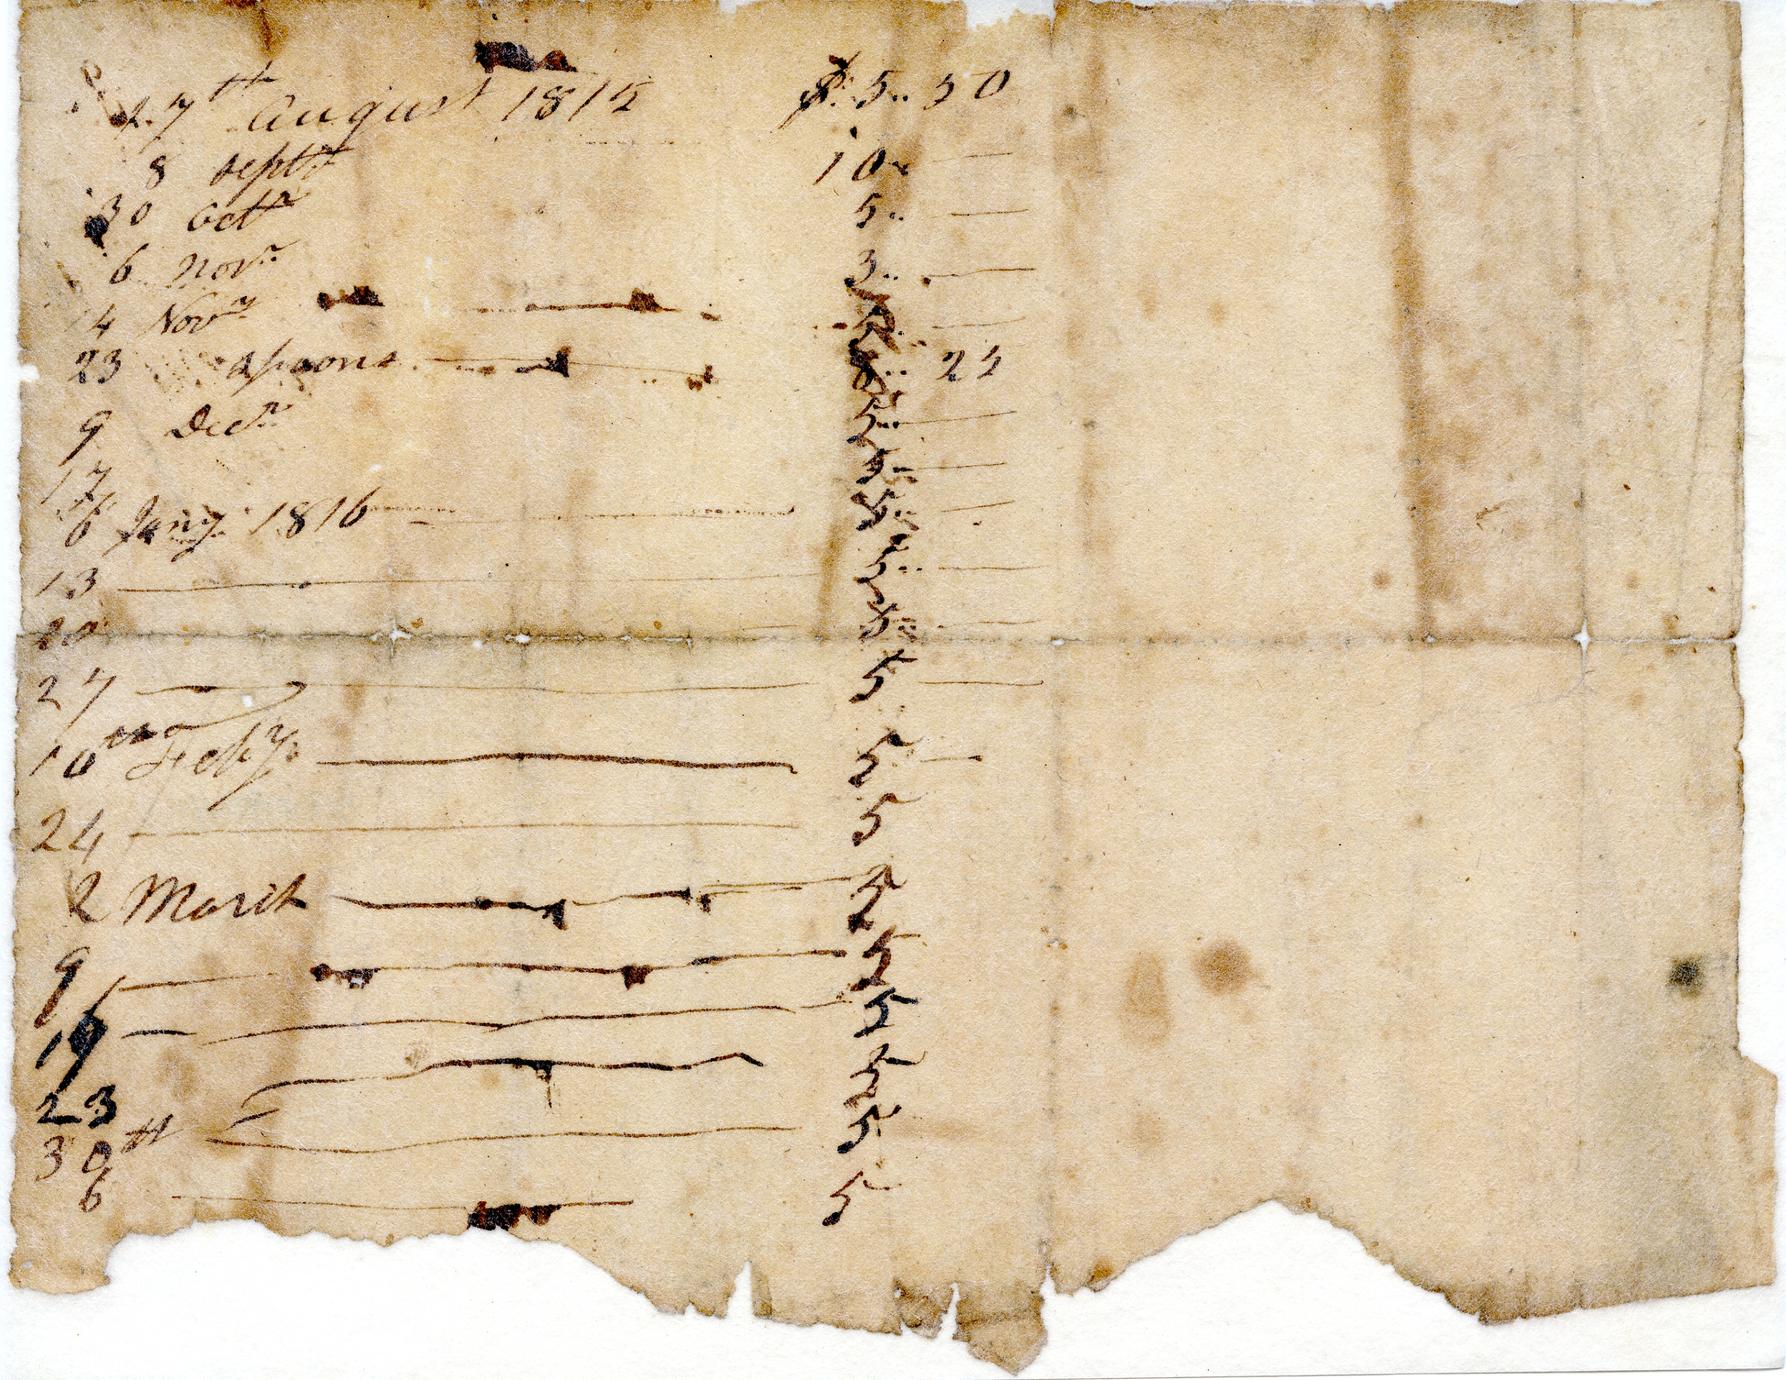 27th August 1815 $ 5.. 50
8 Septr 10.. —
30 Octr 5.. —
6 Novr 3.. —
14 Novr —
23 Spoons — 8.. 25
9 Decr 5.. —
17 5.. —
6 Jany 1816 — 5.. —
13 — 5.. —
20 5.. —
27 — 5 —
10 Feby — 5 —
24 — 5
2 March — 5
9 — 5
— 5
23 — 5
30th — 5
6 — 5